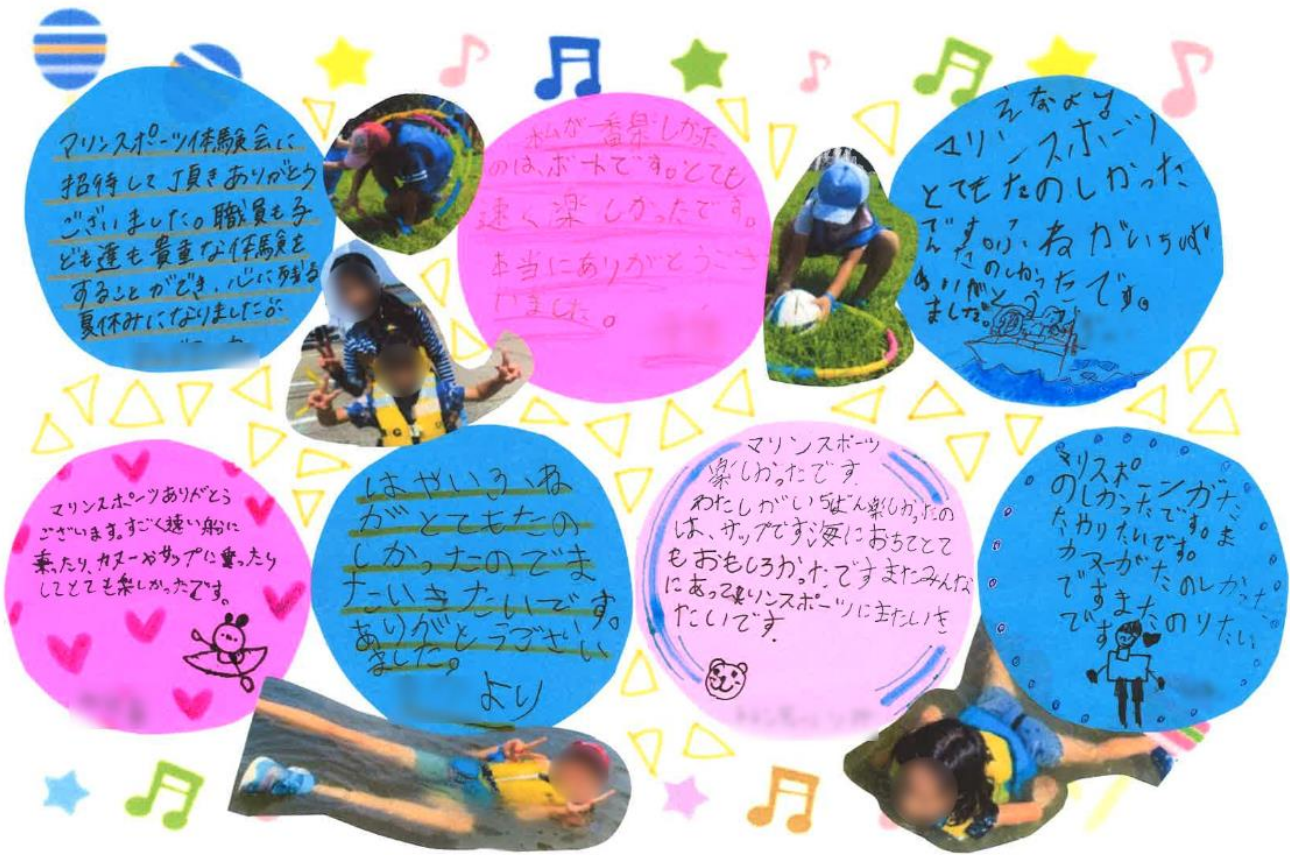 マリンスポーツ体験会に
招待して頂きありがとう
ございました。職員も子
ども達も貴重な体験を
することができ、心に残る
夏休みになりました
私が一番楽しかった
のは、ボートです。とても
速く楽しかったです。
本当にありがとうござ
いました。
えなより
マリンスポーツ
とてもたのしかった
です。ふねがいちば
んたのしかったです。
ありがと
ました。
マリンスポーツありがとう
ございます。すごく速い船に
乗たり、カヌーやサップに乗ったり
してとても楽しかったです。
はやいふね
がとてもたの
しかったのでま
たいきたいです。
ありがとうござい
ました。
より
マリンスポーツ
楽しかったです。
わたしがいちばん楽しかったの
は、サップです。海におちてとて
もおもしろかったですまたみんな
にあってマリンスポーツに
たいです。
がた
のしかったです。ま
たやりたいです。
カヌーがたのしかった
ですまたのりたい
です